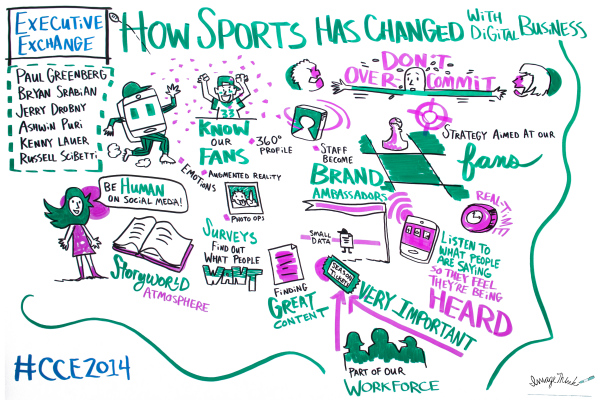 EXECUTIVE
EXCHANGE
#HOW SPORTS HAS CHANGED WITH
DIGITAL BUSINESS
PAUL GREENBERG
BRYAN SRABIAN
JERRY DROBNY
ASHWIN PURI
KENNY LAUER
RUSSELL SCIBETTI
33
KNOW
OUR
FANS
360°
PROFILE
EMOTIONS
AUGMENTED REALITY
PHOTO OPS
DON'T
OVER-COMMIT
STAFF
BECOME
BRAND
AMBASSADORS
STRATEGY AIMED AT OUR
fans
BE HUMAN
ON SOCIAL MEDIA!
STORYWORLD
ATMOSPHERE
SURVEYS
FIND OUT
WHAT PEOPLE
WANT
SMALL
DATA
FINDING
GREAT
CONTENT
REAL-T
LISTEN TO
WHAT PEOPLE
ARE SAYING
SO THEY FEEL
THEY'RE BEING
HEARD
SEASON
TICKET
VERY IMPORTANT
PART OF OUR
WORKFORCE
#CCE2014
ImageThink